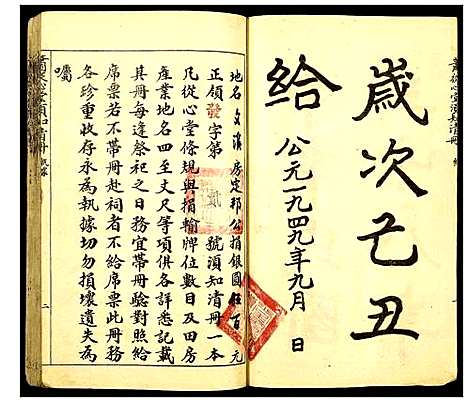 從心堂須知清冊
歲次己丑
給
公元一九四九年九月 日
地名文溪房定邦公捐銀圓伍百元
正領發字第貳號須知清冊一本
凡從心堂條規與捐輸牌位數目及田房
產業地名四至丈尺等項俱各詳悉記載
其冊每逢祭祀之日務宜帶冊驗對照給
席票若不帶冊赴祠者不給席票此冊務
各珍重收存永為執據切勿損壞遺失為
囑
二